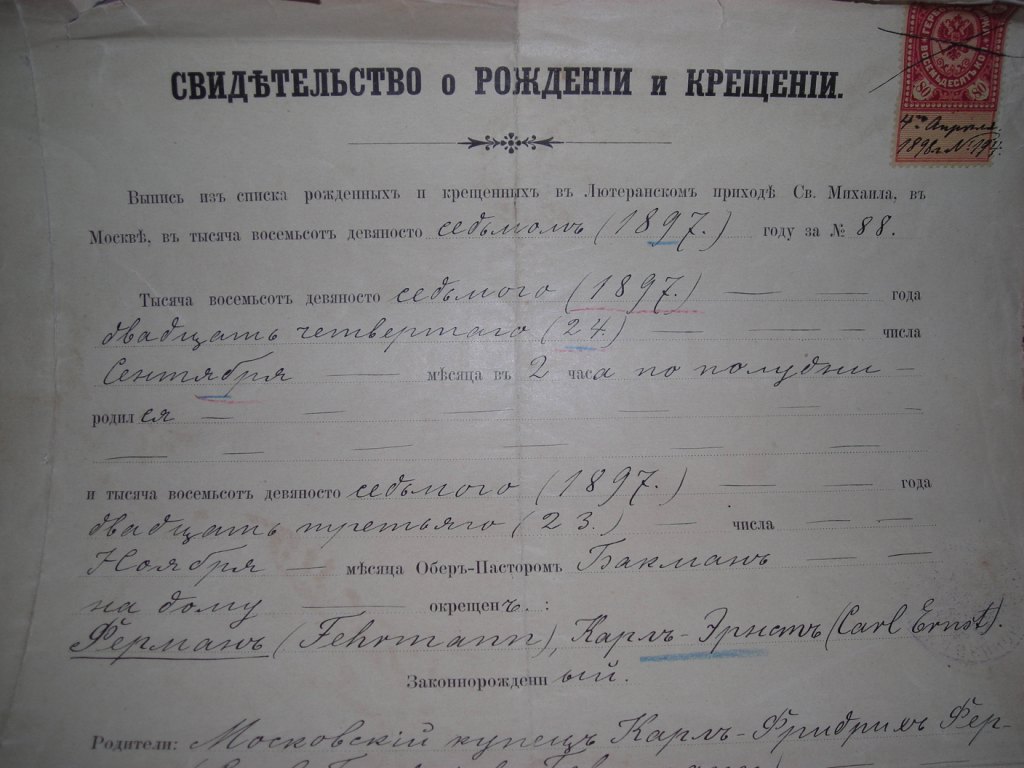 СВИДѢТЕЛЬСТВО о РОЖДЕНІИ и КРЕЩЕНІИ.
ВОСЕМЬДЕСЯТЪ
80 80
4го Апрѣля
1898 г. №
Выпись изъ списка рожденныхъ и крещенныхъ въ Лютеранскомъ приходѣ Св. Михаила, въ
Москвѣ, въ тысяча восемьсотъ девяносто седьмомъ (1897.) году за № 88.
Тысяча восемьсотъ девяносто седьмого (1897.) — — года
двадцать четвертаго (24) — — — числа
Сентября — мѣсяца въ 2 часа по полудни —
родился — — — — — —
— — — — — — —
и тысяча восемьсотъ девяносто седьмого (1897.) — — года
двадцать третьяго (23.) — числа — —
Ноября — мѣсяца Оберъ-Пасторомъ Бакманъ — —
на дому — окрещенъ. :
Ферманъ (Fehrmann), Карлъ-Эрнстъ (Carl Ernst).
Законнорожденный.
Родители: Московскій купецъ Карлъ-Фридрихъ Фер-